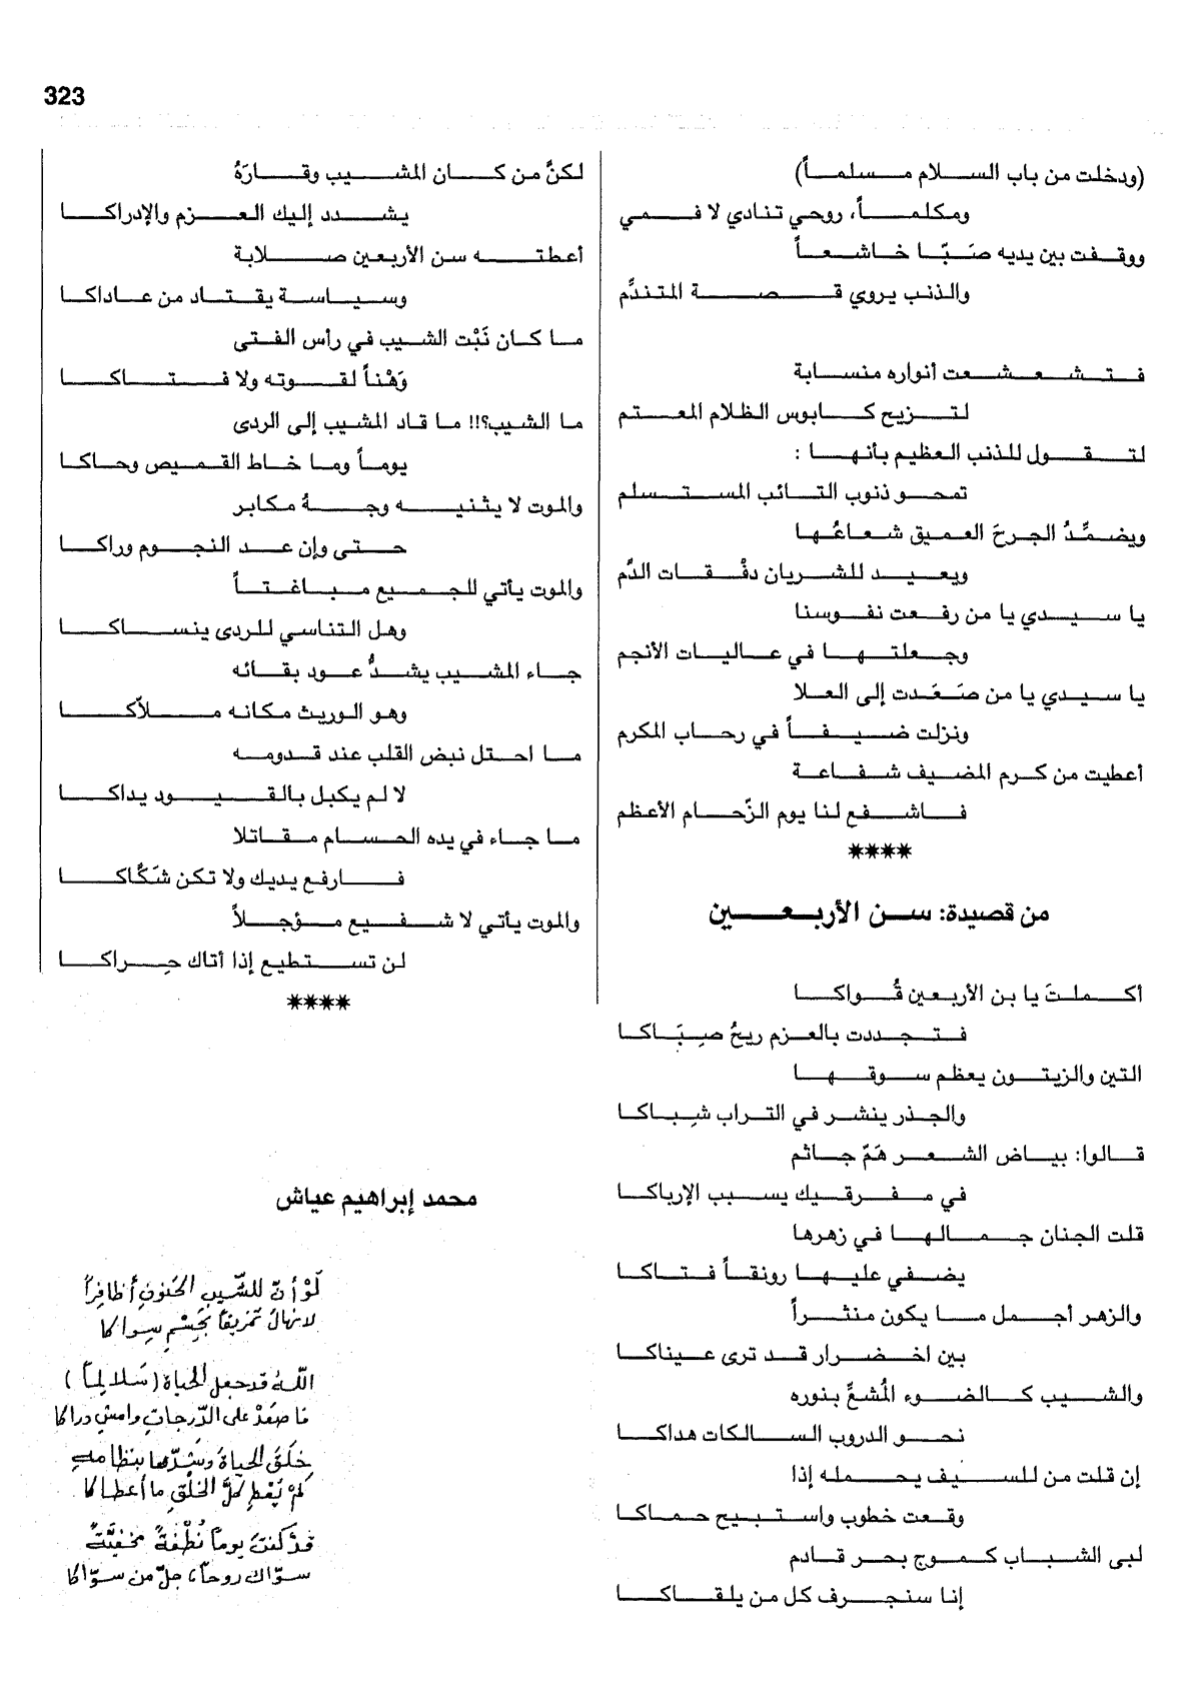 323
(ودخلت من باب السلام مسلماً)
ومكلماً، روحي تنادي لا فمي
ووقفت بين يديه صَبّا خاشعاً
والذنب يروي قصة المتندِّم
فتشعشعت أنواره منسابة
لتزيح كابوس الظلام المعتم
لتقول للذنب العظيم بأنها :
تمحو ذنوب التائب المستسلم
ويضمِّدُ الجرحَ العميق شعاعُها
ويعيد للشريان دفْقات الدَّم
يا سيدي يا من رفعت نفوسنا
وجعلتها في عاليات الأنجم
يا سيدي يا من صَعَدت إلى العلا
ونزلت ضيفاً في رحاب المكرم
أعطيت من كرم المضيف شفاعة
فاشفع لنا يوم الزّحام الأعظم
****
من قصيدة: سن الأربعين
أكملتَ يا بن الأربعين قُواكا
فتجددت بالعزم ريحُ صِبَاكا
التين والزيتون يعظم سوقها
والجذر ينشر في التراب شِباكا
قالوا: بياض الشعر هَمّ جاثم
في مفرقيك يسبب الإرباكا
قلت الجنان جمالها في زهرها
يضفي عليها رونقاً فتاكا
والزهر أجمل ما يكون منثراً
بين اخضرار قد ترى عيناكا
والشيب كالضوء المُشعِّ بنوره
نحو الدروب السالكات هداكا
إن قلت من للسيف يحمله إذا
وقعت خطوب واستبيح حماكا
لبى الشباب كموج بحر قادم
إنا سنجرف كل من يلقاكا
لكنَّ من كان المشيب وقارَهُ
يشدد إليك العزم والإدراكا
أعطته سن الأربعين صلابة
وسياسة يقتاد من عاداكا
ما كان نَبْت الشيب في رأس الفتى
وَهْناً لقوته ولا فتاكا
ما الشيب؟!! ما قاد المشيب إلى الردى
يوماً وما خاط القميص وحاكا
والموت لا يثنيه وجهُ مكابر
حتى وإن عد النجوم وراكا
والموت يأتي للجميع مباغتاً
وهل التناسي للردى ينساكا
جاء المشيب يشدُّ عود بقائه
وهو الوريث مكانه ملاّكا
ما احتل نبض القلب عند قدومه
لا لم يكبل بالقيود يداكا
ما جاء في يده الحسام مقاتلا
فارفع يديك ولا تكن شَكّاكا
والموت يأتي لا شفيع مؤجلاً
لن تستطيع إذا أتاك حِراكا
****
محمد إبراهيم عياش
لَوْ أنّ للشَّيبِ الحَنونِ أظافِراً
لانهالَ تمزيقاً بجَسْمِ سِواكا
اللّهُ قد جعل الحياة (سَلالماً)
فاصعَدْ على الدّرجاتِ وامشِ دراكا
خلَقَ الحياةَ وسَيّرها بنظامهِ
لمْ يُعْطِ كلَّ الخلْقِ ما أعطاكا
قدْ كنتَ يوماً نُطْفةً مخفيّةً
سوّاك روحاً، جلّ من سوّاكا